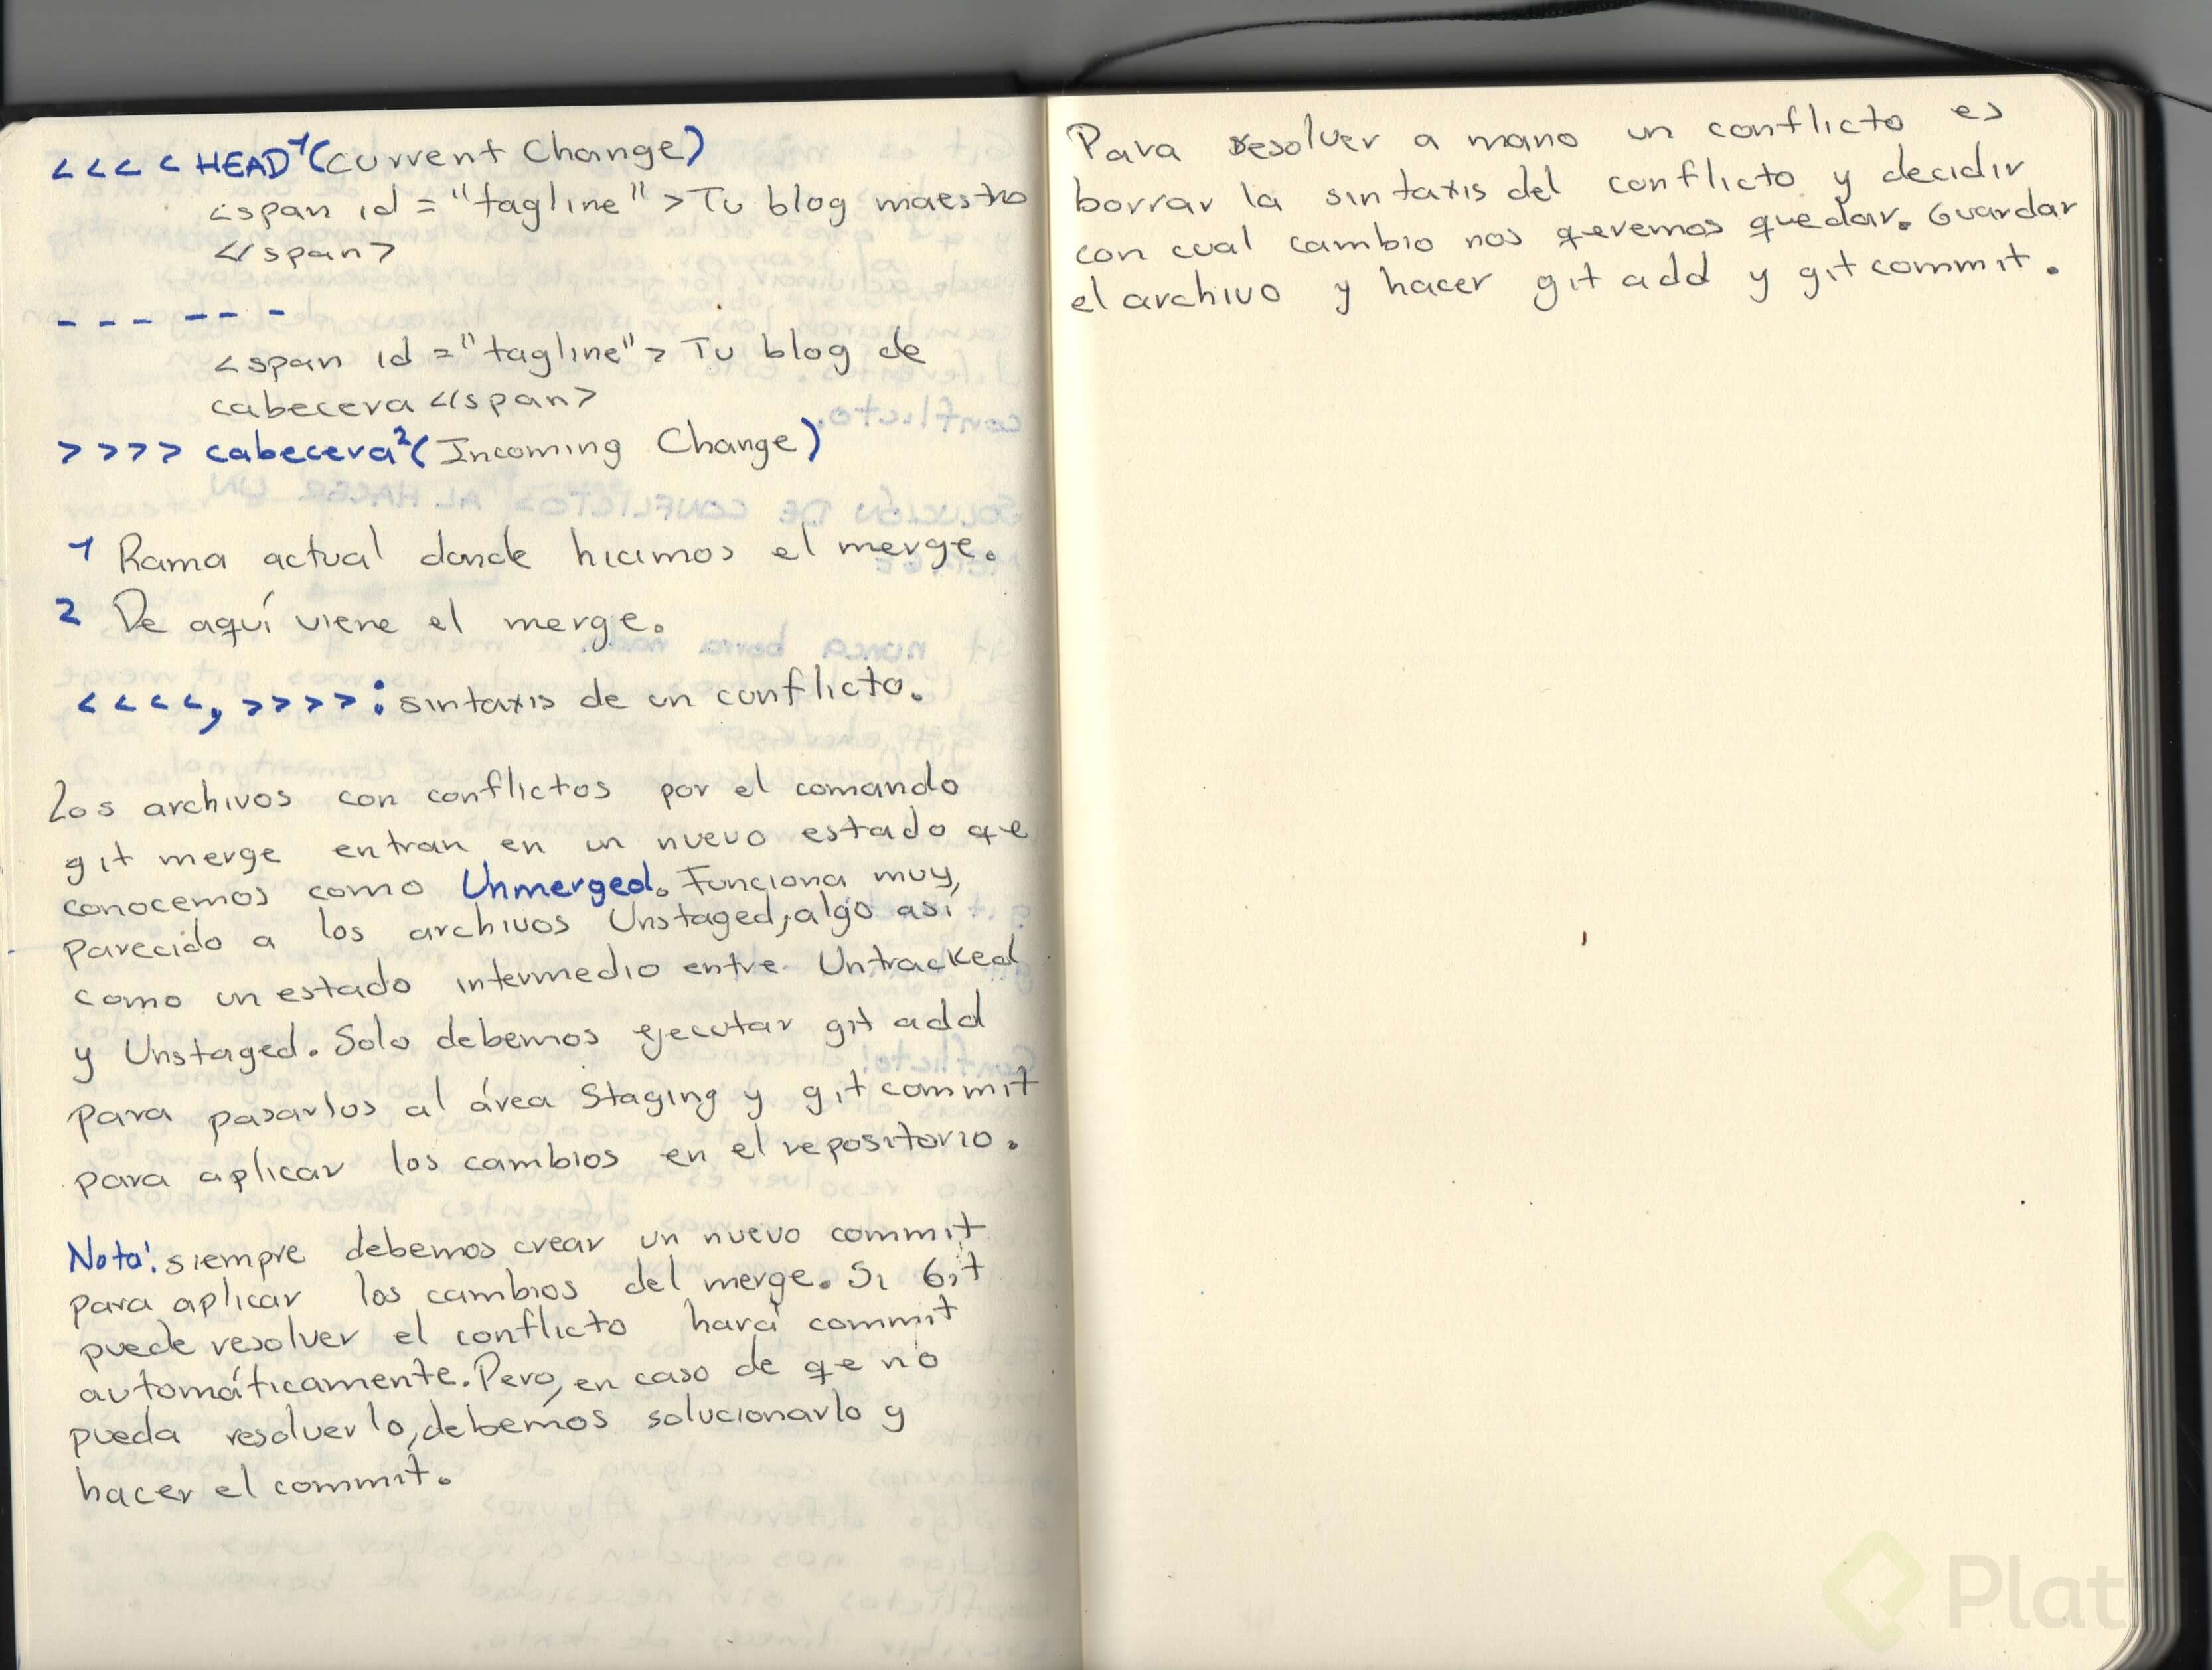 <<<< HEAD¹ (Current Change)
<span id = "tagline" > Tu blog maestro
</span>
- - - - - -
<span id = "tagline" > Tu blog de
cabecera </span>
>>>> cabecera² (Incoming Change)
1 Rama actual donde hicimos el merge.
2 De aquí viene el merge.
<<<<, >>>>: sintaxis de un conflicto.
Los archivos con conflictos por el comando
git merge entran en un nuevo estado qe
conocemos como Unmerged. Funciona muy
parecido a los archivos Unstaged, algo así
como un estado intermedio entre Untracked
y Unstaged. Solo debemos ejecutar git add
para pasarlos al área Staging y git commit
para aplicar los cambios en el repositorio.
Nota: siempre debemos crear un nuevo commit
para aplicar los cambios del merge. Si Git
puede resolver el conflicto hará commit
automáticamente. Pero, en caso de qe no
pueda resolverlo, debemos solucionarlo y
hacer el commit.
Para resolver a mano un conflicto es
borrar la sintaxis del conflicto y decidir
con cual cambio nos qeremos quedar. Guardar
el archivo y hacer git add y git commit.
Plat